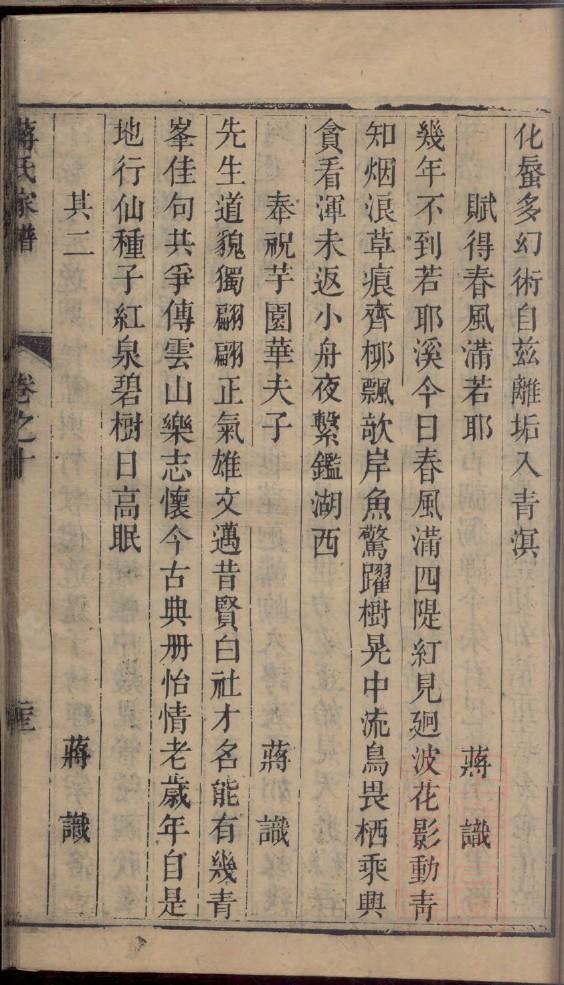 化蜃多幻術自茲離垢入青溟
賦得春風滿若耶 蔣 識
幾年不到若耶溪今日春風滿四隄紅見廻波花影動青
知烟浪草痕齊栁飄欹岸魚驚躍樹晃中流鳥畏栖乘興
貪看渾未返小舟夜繫鑑湖西
奉祝芋園華夫子 蔣 識
先生道貌獨翩翩正氣雄文邁昔賢白社才名能有幾青
峯佳句共爭傳雲山樂志懷今古典册怡情老歲年自是
地行仙種子紅泉碧樹日高眠
其二 蔣 識
蔣氏家譜 卷之十